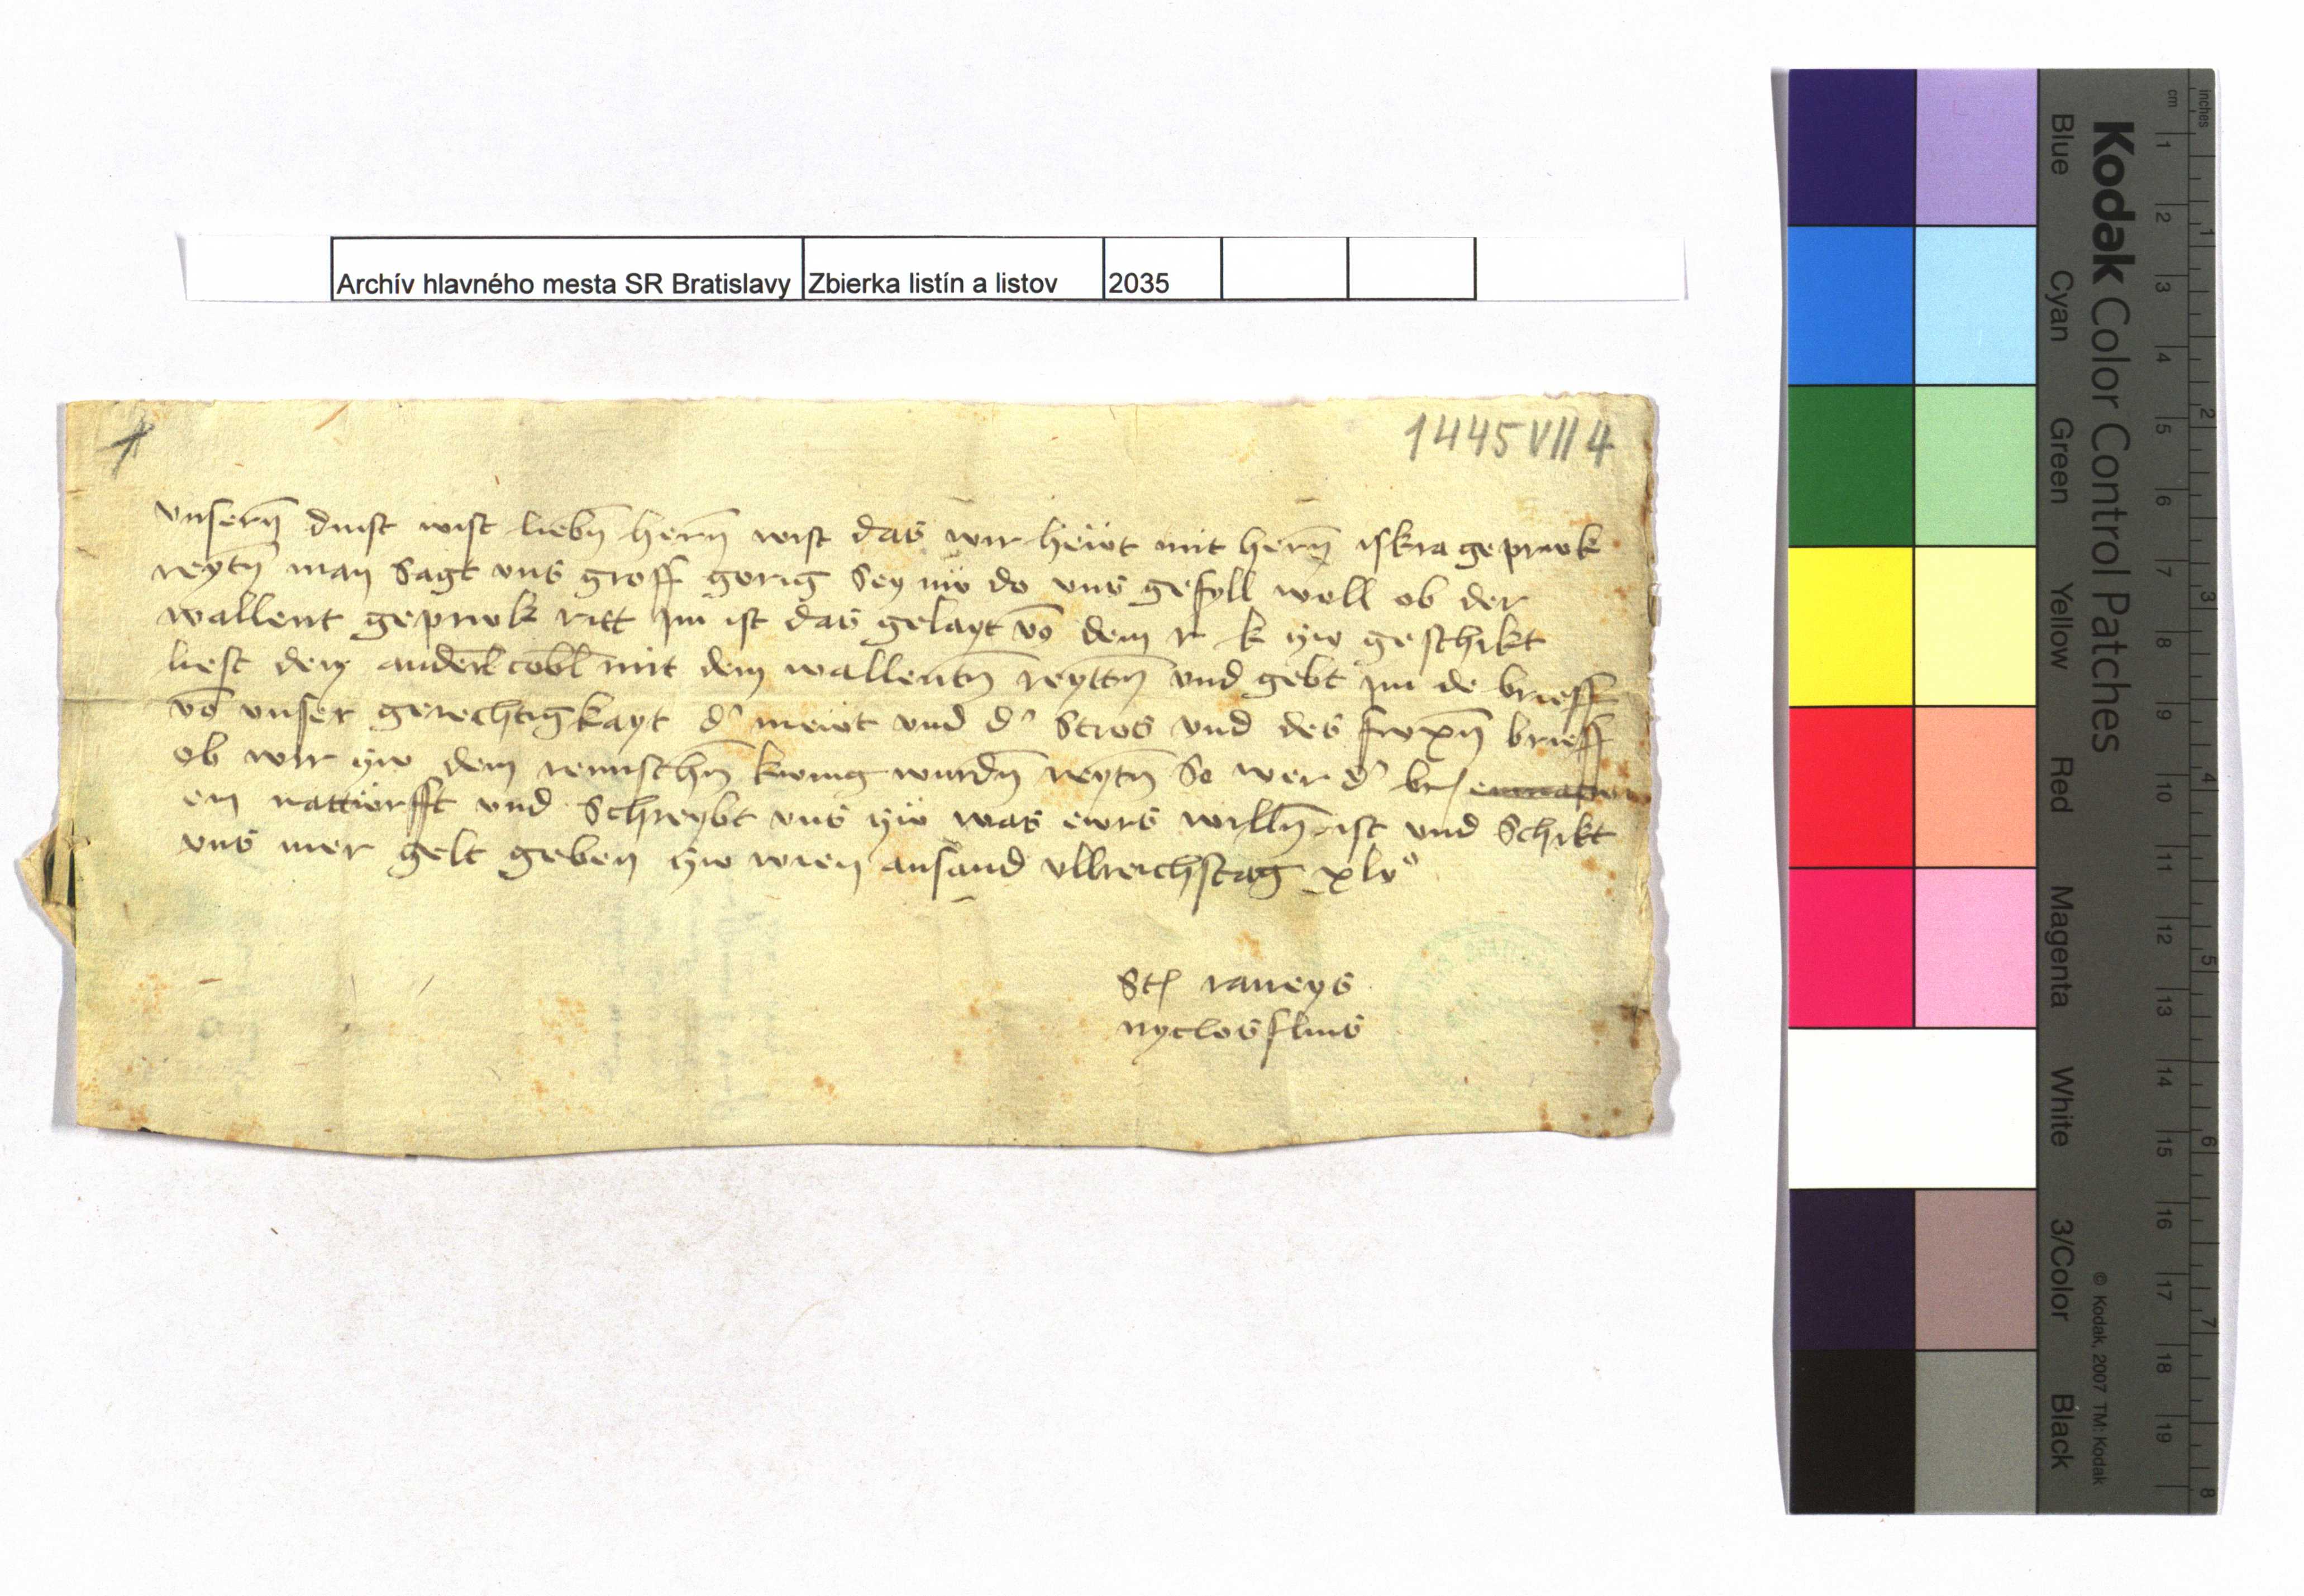 Archív hlavného mesta SR Bratislavy Zbierka listín a listov 2035
1445 VII 4
vnsern̄ dinst wist liebn̄ hern̄ wist das wir hewt mit hern̄ iskra geprwk
reytn̄ man sagt vns groff gorig sey do vns gefyll woll ob der
wallent geprwk ritt im ist das gelayt vō dem r k geschikt
liest den anderl cobl mit dem wallentn̄ reyttn̄ vnd gebt im de brieff
vō vnser gerechtigkayt d' mewt vnd d' stros vnd des brieff
ob wir dem remischn̄ kwnig wurdn̄ reytn̄ so wer d'
en nattwrfft vnd schreybt vns was ewrs willn̄ ist vnd schikt
vns mer gelt geben wien ansand vllreichstag xlvº
Ste raneys
nyclos flins
Kodak Color Control Patches
Blue Cyan Green Yellow Red Magenta White 3/Color Black
© Kodak, 2007 TM: Kodak
inches 1 2 3 4 5 6 7 8
cm 1 2 3 4 5 6 7 8 9 10 11 12 13 14 15 16 17 18 19